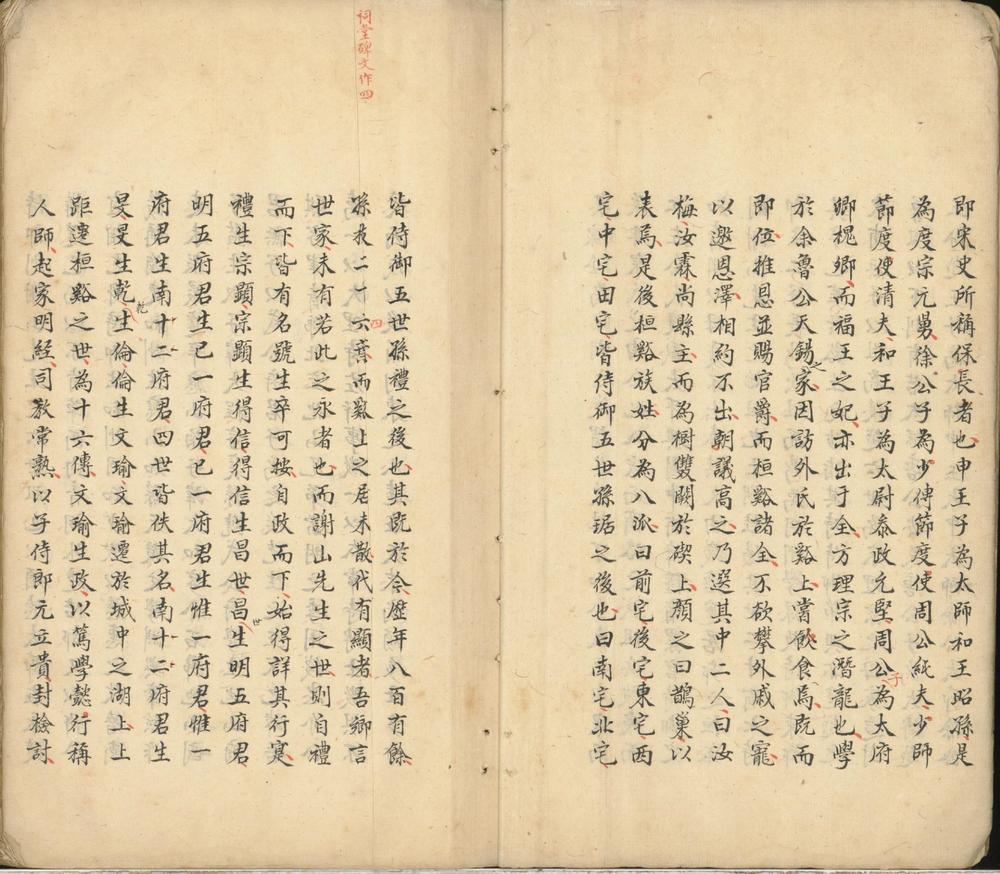 即宋史所稱保長者也申王子為太師和王昭孫是
為度宗元舅徐公子為少傅節度使周公純夫少師
節度使清夫和王子為太尉參政允堅周公子為太府
卿槐卿而福王之妃亦出于全方理宗之潛龍也學
於余魯公天錫之家因訪外氏於谿上嘗飲食焉既而
即位推恩並賜官爵而桓谿諸全不欲攀外戚之寵
以邀恩澤相約不出朝議高之乃選其中二人曰汝
梅汝霖尚縣主而為樹雙闕於碶上顏之曰鵲巢以
表焉是後桓谿族姓分為八派曰前宅後宅東宅西
宅中宅田宅皆侍御五世孫琚之後也曰南宅北宅
皆侍御五世孫禮之後也其既於今歷年八百有餘
孫枝二十六四葉而谿上之居未散代有顯者吾鄉言
世家未有若此之永者也而謝山先生之世則自禮
而下皆有名號生卒可按自政而下始得詳其行寔
禮生宗顯宗顯生得信得信生昌世昌世生明五府君
明五府君生己一府君己一府君生惟一府君惟一
府君生南十二府君四世皆佚其名南十二府君生
旻旻生乾乾生倫倫生文瑜文瑜遷於城中之湖上上
距遷桓谿之世為十六傳文瑜生政以篤學懿行稱
人師起家明經司教常熟以子侍郎元立貴封檢討
祠堂碑文作四